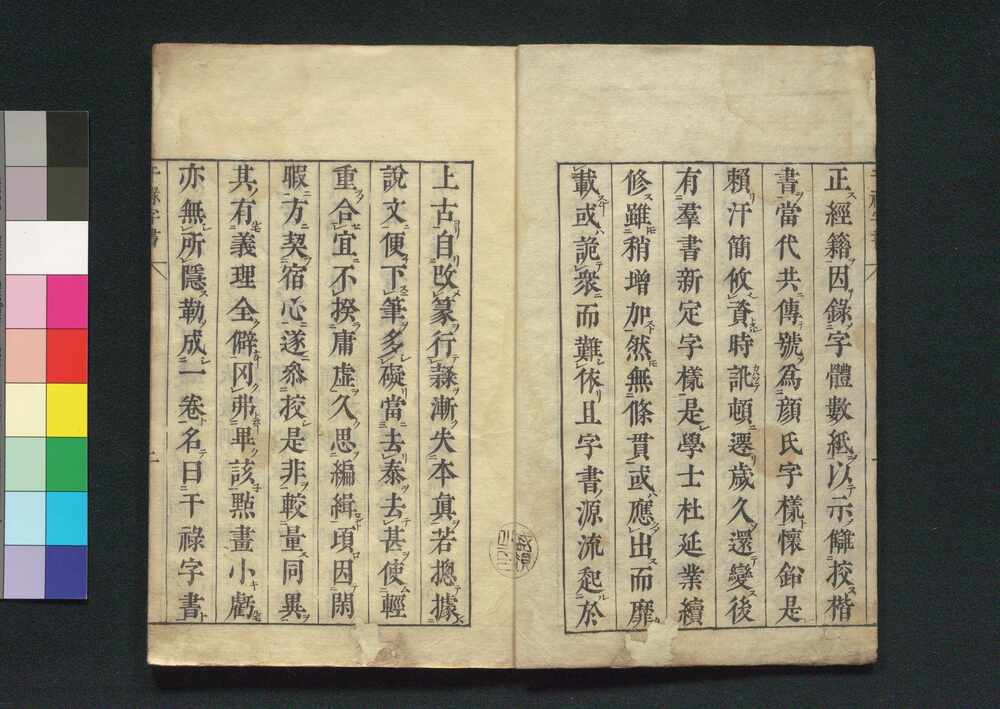 正經籍因錄字體數紙以示讎挍楷
書當代共傳號為顏氏字樣懷鉛是
賴汗簡攸資時訛頓遷歲久還變後
有羣書新定字樣是學士杜延業續
修雖稍增加然無條貫或應出而靡
載或詭衆而難依且字書源流起於
上古自改篆行隸漸失本真若揔據
說文便下筆多礙當去泰去甚使輕
重合宜不揆庸虛久思編緝頃因閑
暇方契宿心遂叅挍是非較量同異
其有義理全僻罔弗畢該點畫小虧
亦無所隱勒成一卷名曰干祿字書